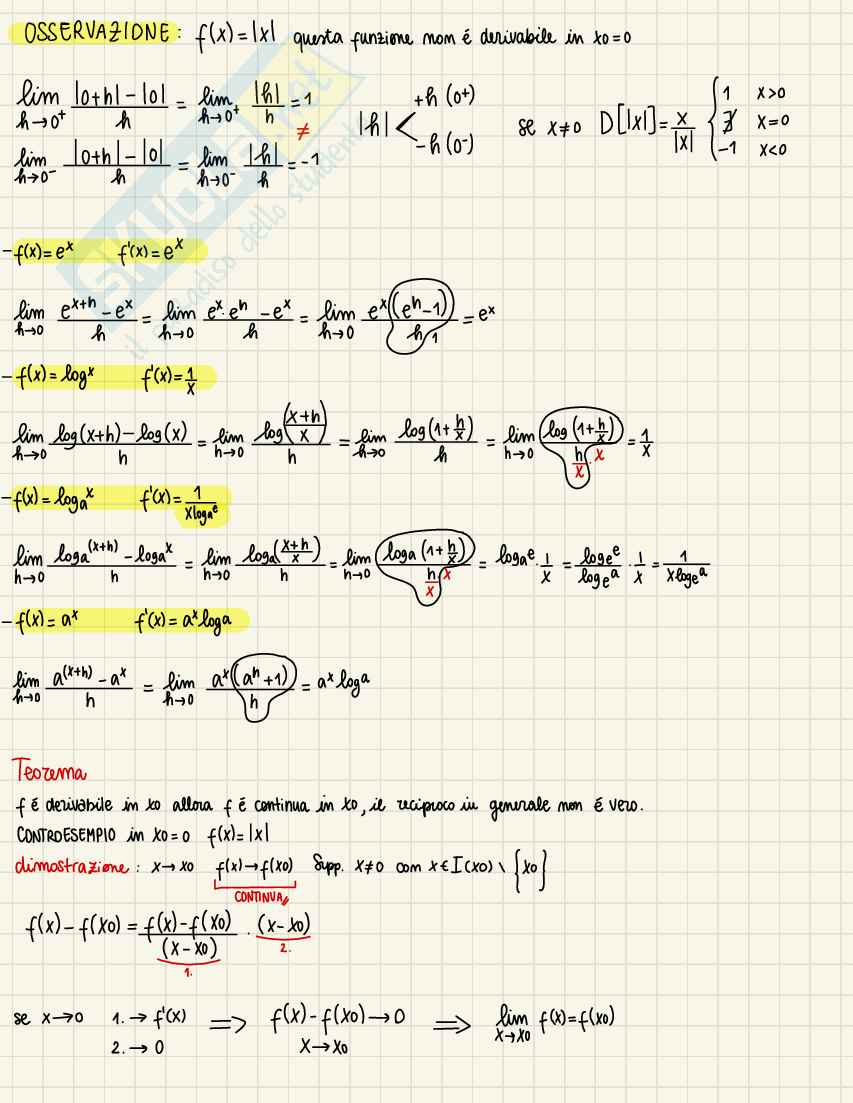 OSSERVAZIONE: f(x) = |x| questa funzione non é derivabile in x0=0
lim h→0⁺ |0+h| - |0| / h = lim h→0⁺ |h| / h = 1
≠
|h| < +h (0⁺) -h (0⁻)
se x≠0 D[|x|] = x/|x| { 1 x>0 ∄ x=0 -1 x<0
lim h→0⁻ |0+h| - |0| / h = lim h→0⁻ |h| / h = -1
- f(x) = eˣ f'(x) = eˣ
lim h→0 eˣ⁺ʰ - eˣ / h = lim h→0 eˣ · eʰ - eˣ / h = lim h→0 eˣ (eʰ - 1) / h 1 = eˣ
- f(x) = logˣ f'(x) = 1/x
lim h→0 log(x+h) - log(x) / h = lim h→0 log(x+h / x) / h = lim h→0 log(1 + h/x) / h = lim h→0 log(1 + h/x) / h/x · x = 1/x
- f(x) = logaˣ f'(x) = 1 / x logaᵉ
lim h→0 loga⁽ˣ⁺ʰ⁾ - logaˣ / h = lim h→0 loga(x+h / x) / h = lim h→0 loga(1 + h/x) / h/x x = logaᵉ · 1/x = logeᵉ / logeᵃ · 1/x = 1 / x logeᵃ
- f(x) = aˣ f'(x) = aˣ loga
lim h→0 a⁽ˣ⁺ʰ⁾ - aˣ / h = lim h→0 aˣ (aʰ + 1) / h = aˣ logᵃ
Teorema
f é derivabile in x0 allora f é continua in x0, il reciproco in generale non é vero.
CONTROESEMPIO in x0=0 f(x) = |x|
dimostrazione: x→x0 f(x)→f(x0) Supp. x≠0 con x∈I(x0) \ {x0}
CONTINUA
f(x) - f(x0) = f(x) - f(x0) / (x - x0) · (x - x0)
1. 2.
se x→0 1. → f'(x) ⟹ f(x) - f(x0) → 0 ⟹ lim x→x0 f(x) = f(x0)
2. → 0 x→x0
SKUOLA.net
il paradiso dello studente